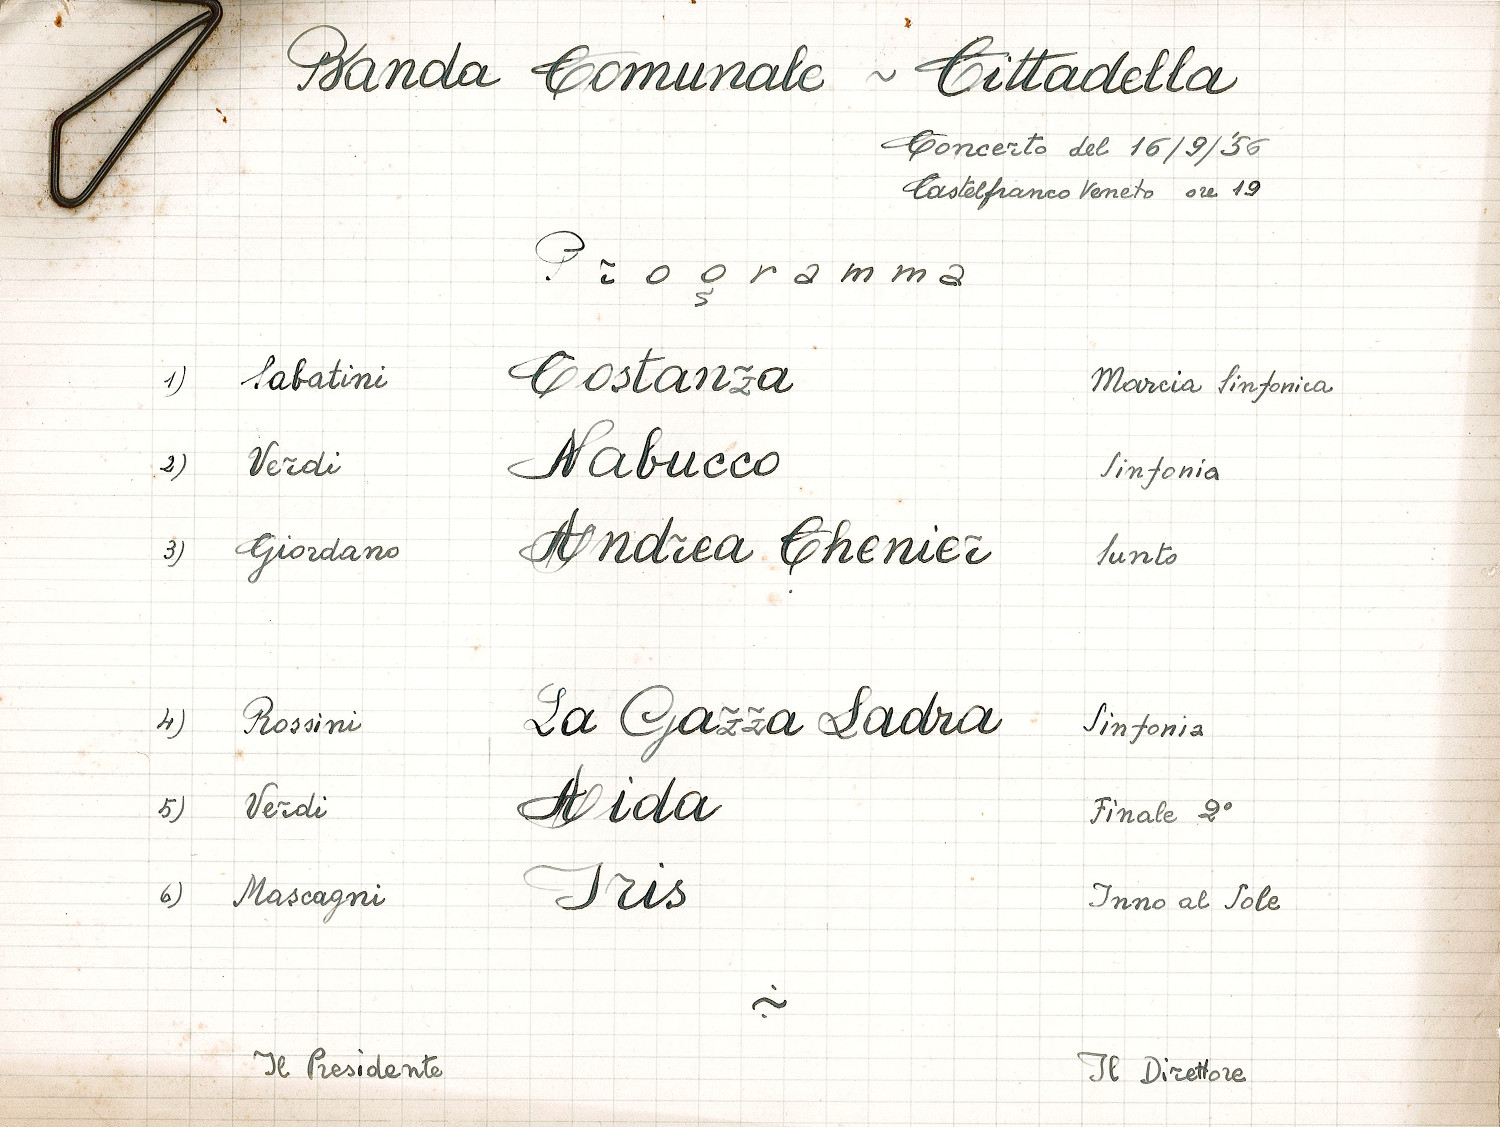 Banda Comunale ~ Cittadella
Concerto del 16/9/'56
Castelfranco Veneto ore 19
Programma
1) Sabatini Costanza Marcia Sinfonica
2) Verdi Nabucco Sinfonia
3) Giordano Andrea Chenier Sunto
4) Rossini La Gazza Ladra Sinfonia
5) Verdi Aida Finale 2°
6) Mascagni Iris Inno al Sole
~
Il Presidente Il Direttore